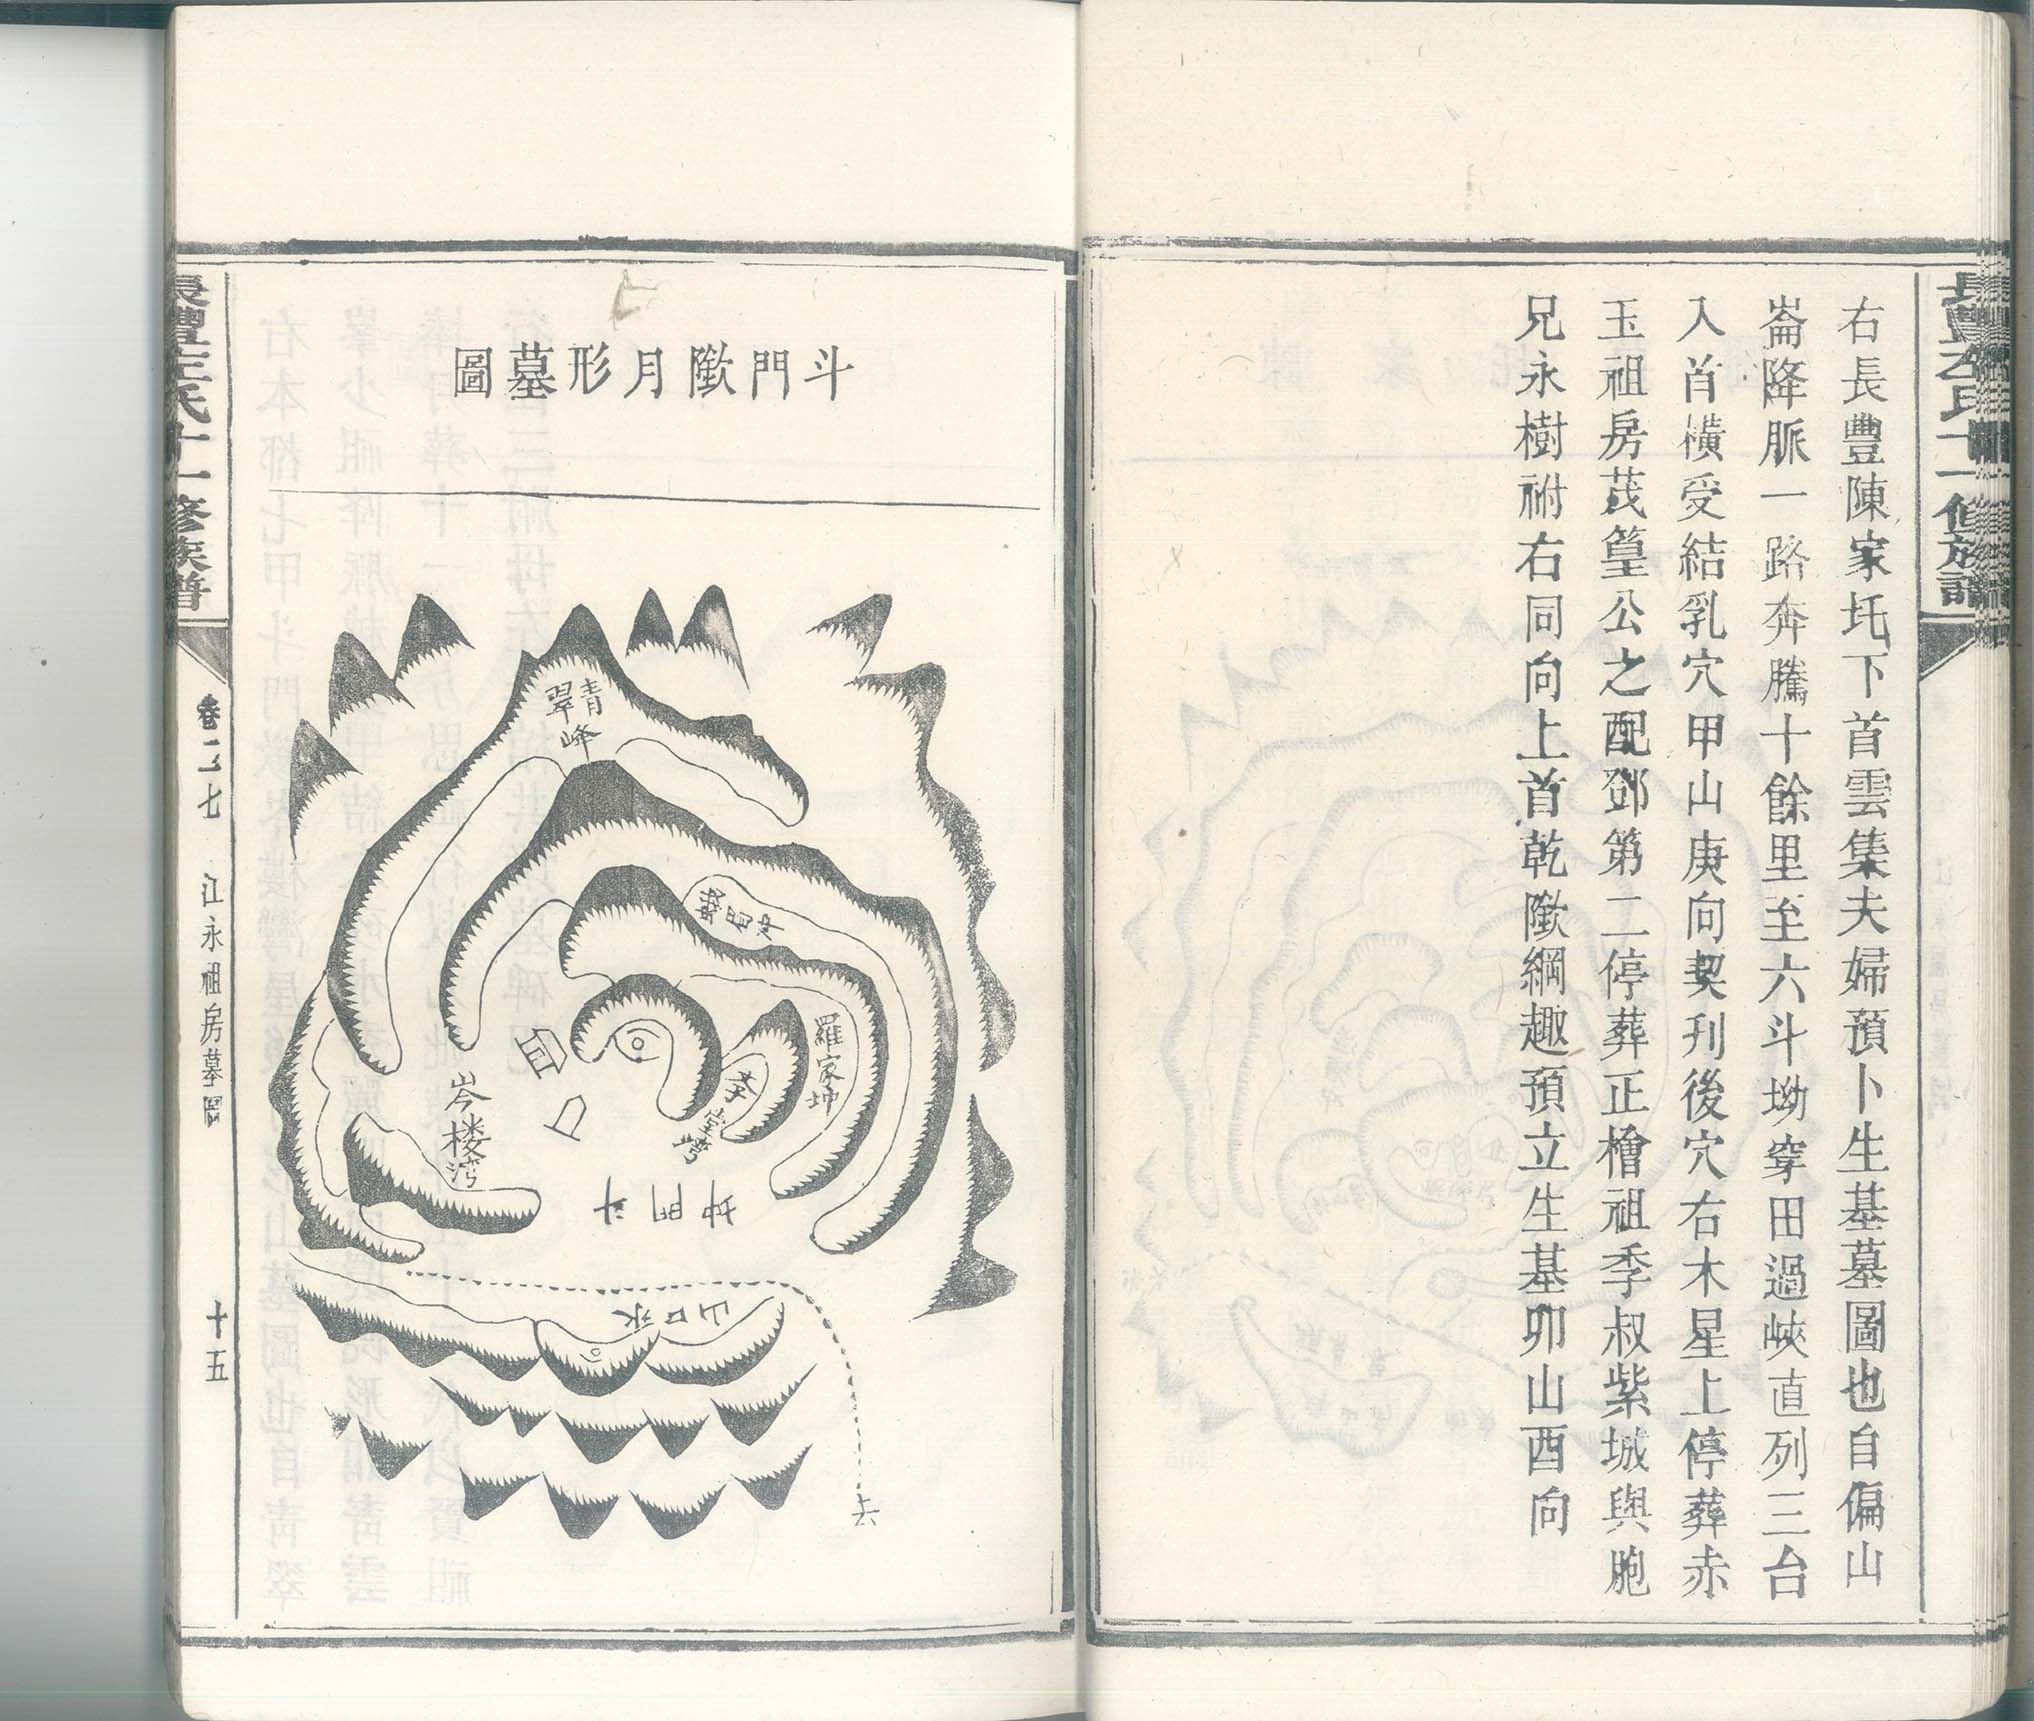 長豐左氏十一修族譜
右長豐陳家圫下首雲集夫婦預卜生基墓圖也自偏山
崙降脈一路奔騰十餘里至六斗坳穿田過峽直列三台
入首橫受結乳穴甲山庚向契刋後穴右木星上停葬赤
玉祖房茂篁公之配鄧第二停葬正檜祖季叔紫城與胞
兄永樹祔右同向上首乾隞綱趣預立生基卯山酉向
斗門隞月形墓圖
青翠峰
羅家坤
李堂塆
岑楼湾
斗門坤
水口山
去
長豐左氏十一修族譜
卷二七
江永祖房墓圖
十五